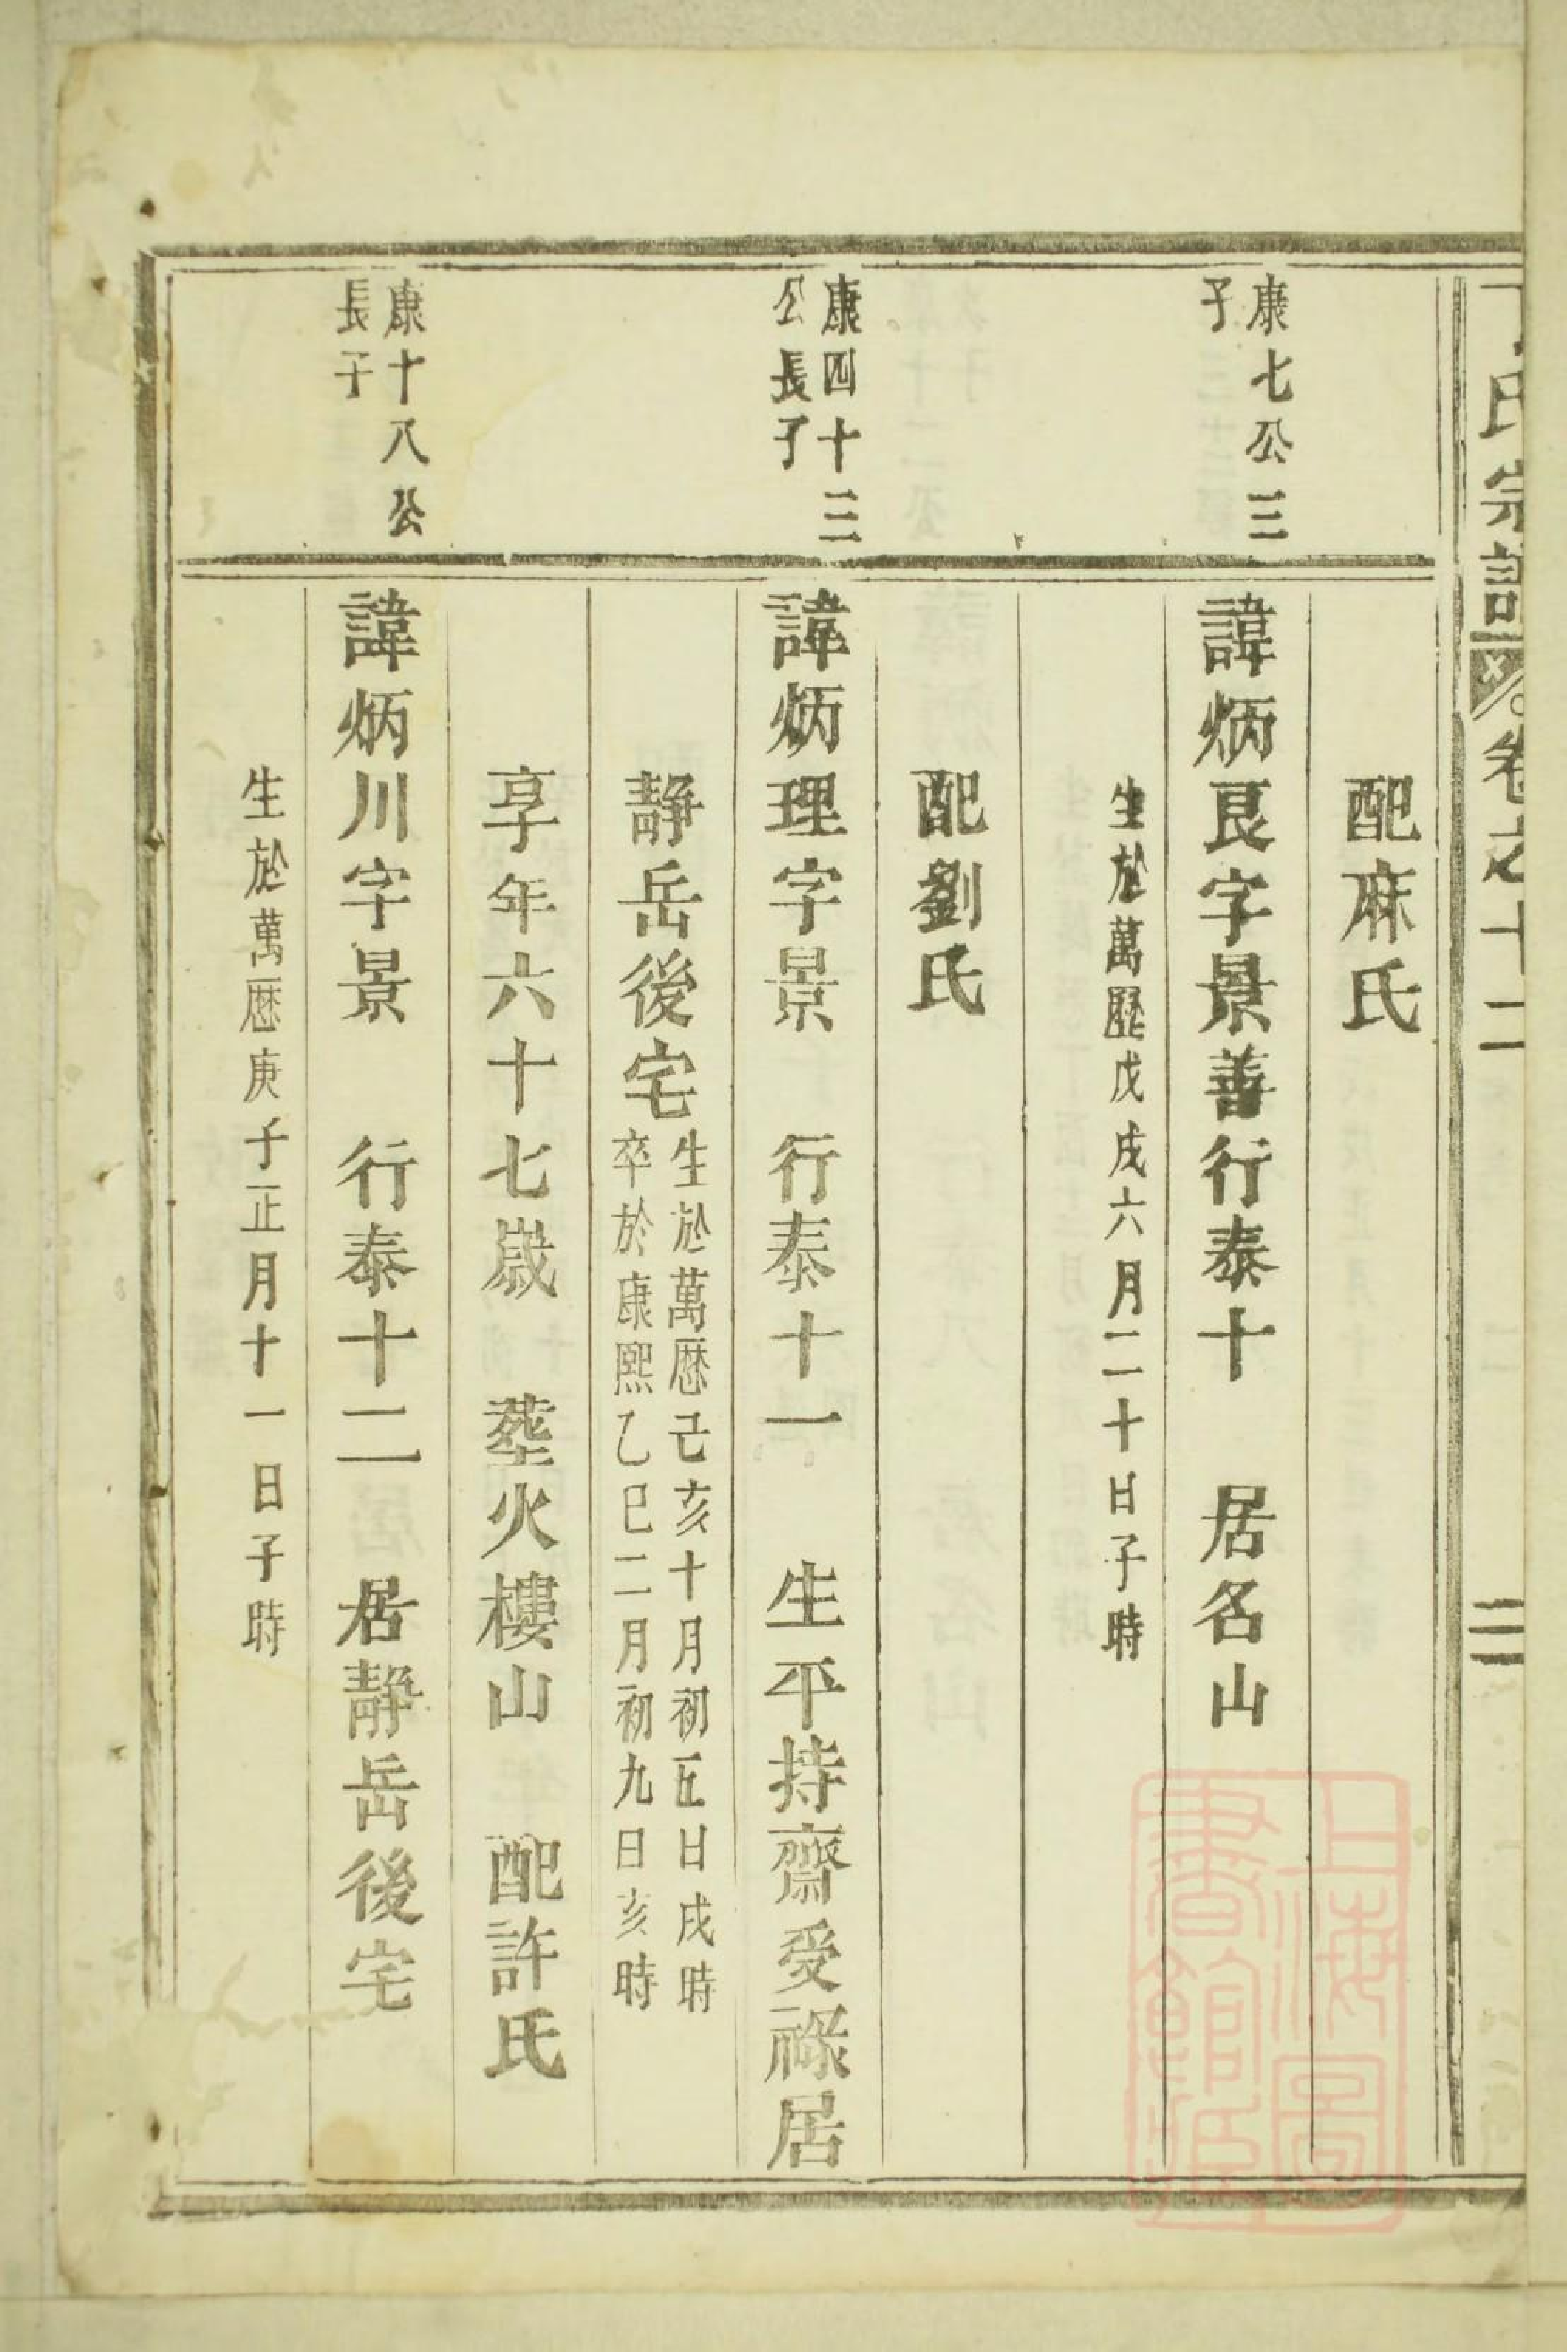 丁氏宗譜 卷之十二
配麻氏
康七公三
子
諱炳良字景善行泰十 居名山
生於萬歷戊戌六月二十日子時
配劉氏
康四十三
公長子
諱炳理字景 行泰十一 生平持齋受祿居
靜岳後宅
生於萬厯己亥十月初五日戌時
卒於康熙乙巳二月初九日亥時
享年六十七歲 塟火樓山 配許氏
康十八公
長子
諱炳川字景 行泰十二 居靜岳後宅
生於萬厯庚子正月十一日子時
上海圖
書館藏